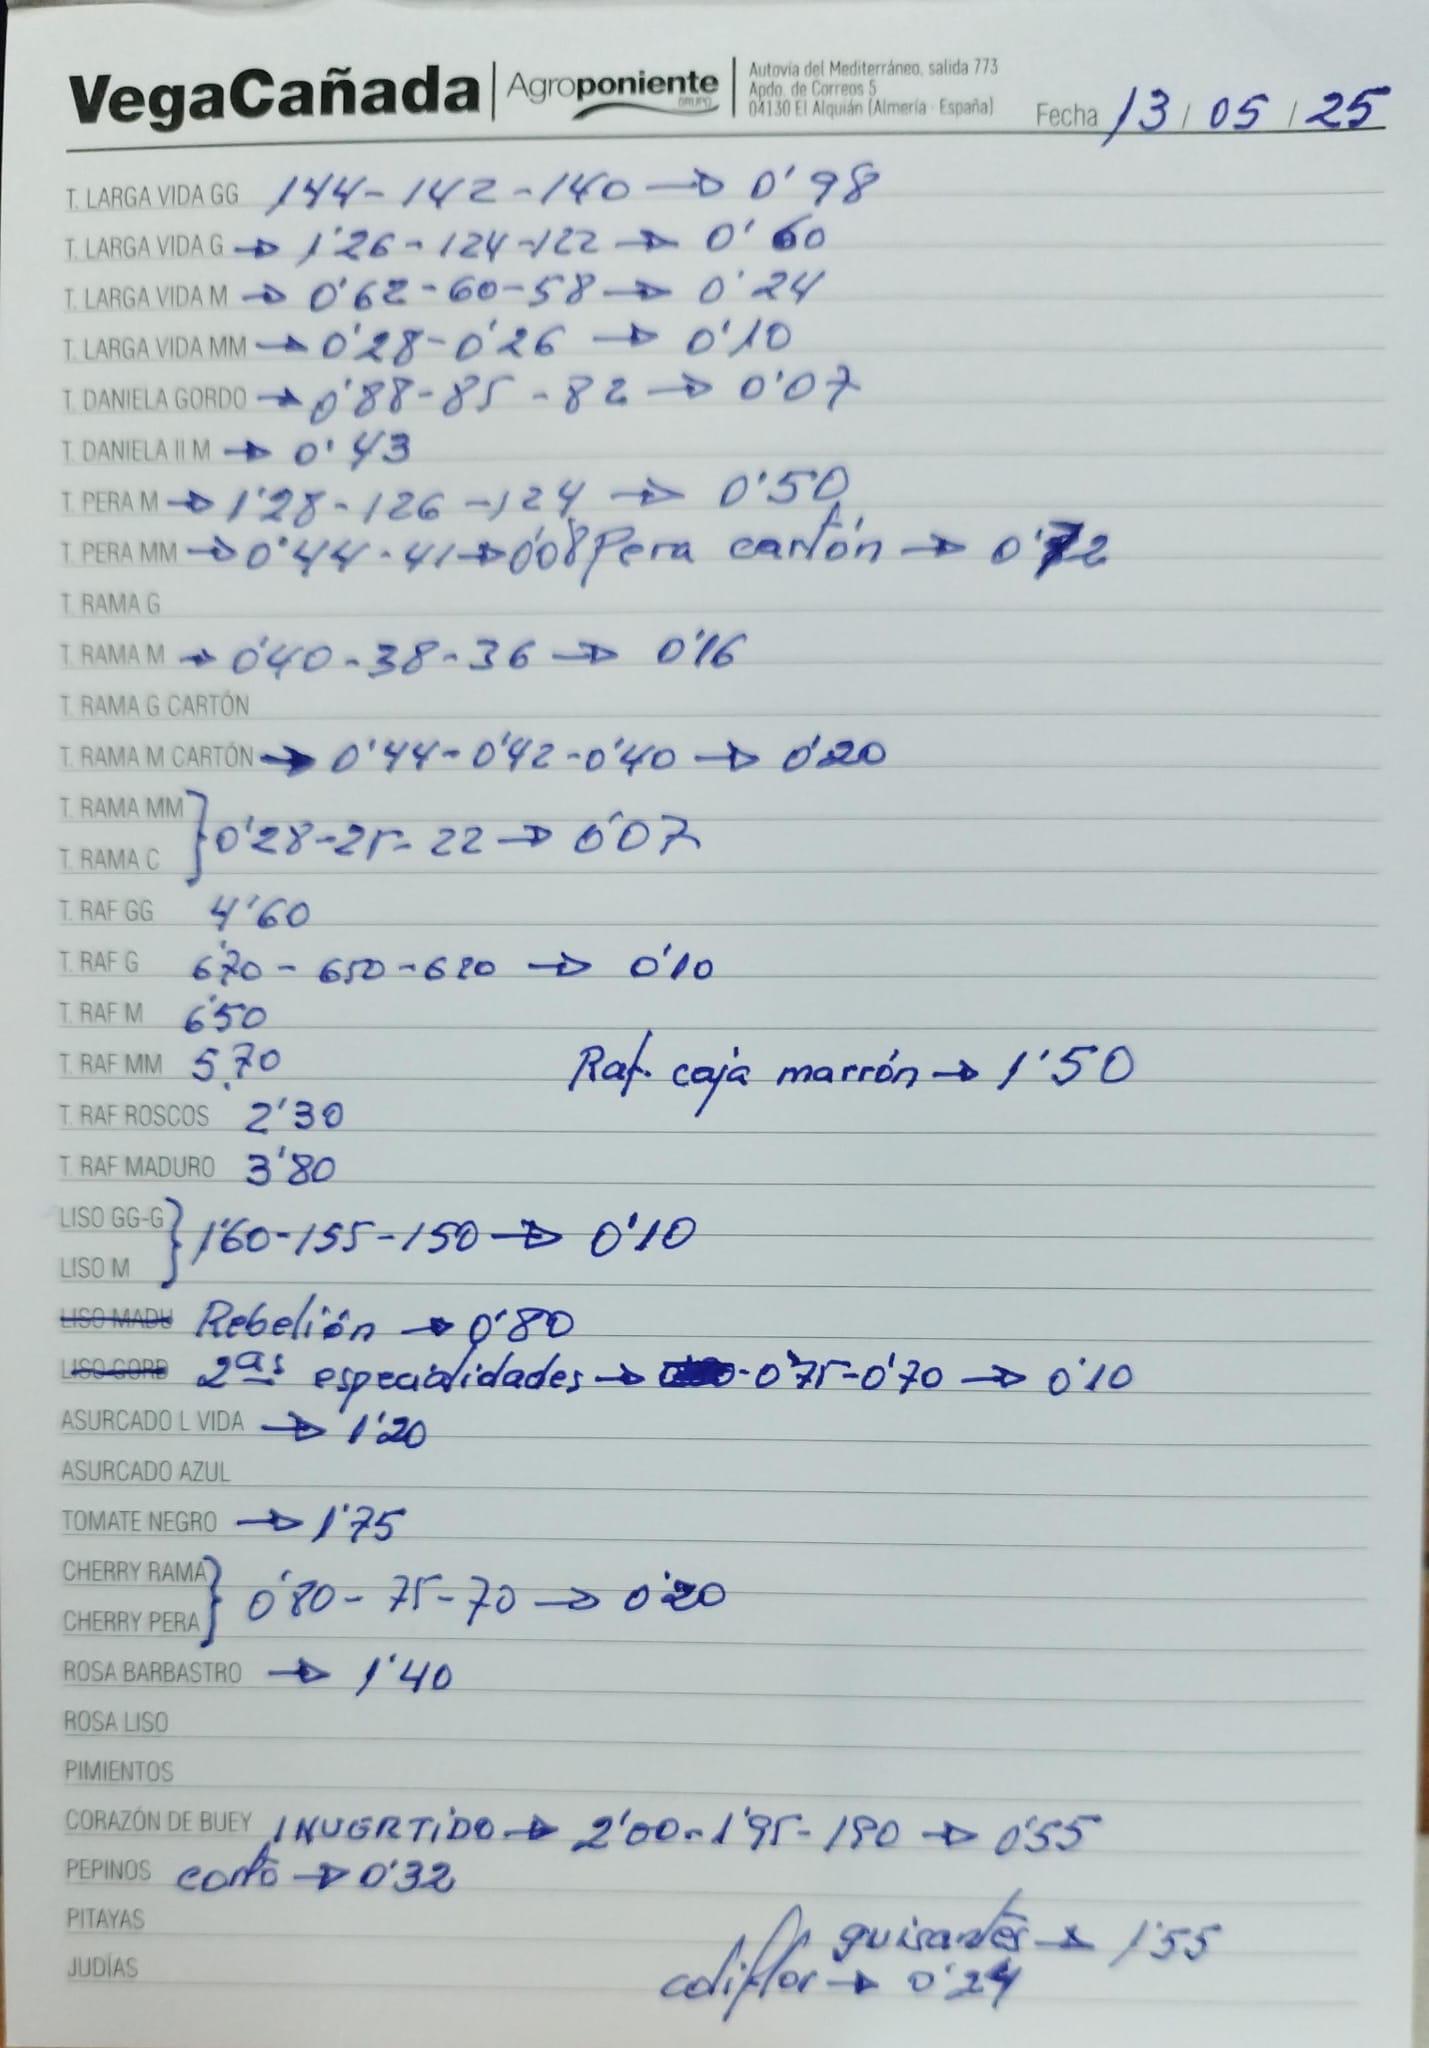 VegaCañada | Agroponiente GRUPO | Autovía del Mediterráneo, salida 773
Apdo. de Correos 5
04130 El Alquián (Almería - España)
Fecha 13 / 05 / 25
T. LARGA VIDA GG 144 - 142 - 140 → 0'98
T. LARGA VIDA G → 1'26 - 124 - 122 → 0'60
T. LARGA VIDA M → 0'62 - 60 - 58 → 0'24
T. LARGA VIDA MM → 0'28 - 0'26 → 0'10
T. DANIELA GORDO → 0'88 - 85 - 82 → 0'07
T. DANIELA II M → 0'43
T. PERA M → 1'28 - 126 - 124 → 0'50
T. PERA MM → 0'44 - 41 → 0'08 Pera cartón → 0'72
T. RAMA G
T. RAMA M → 0'40 - 38 - 36 → 0'16
T. RAMA G CARTÓN
T. RAMA M CARTÓN → 0'44 - 0'42 - 0'40 → 0'20
T. RAMA MM
T. RAMA C } 0'28 - 25 - 22 → 0'07
T. RAF GG 4'60
T. RAF G 6'70 - 650 - 620 → 0'10
T. RAF M 6'50
T. RAF MM 5,70 Raf. caja marrón → 1'50
T. RAF ROSCOS 2'30
T. RAF MADURO 3'80
LISO GG-G
LISO M } 1'60 - 155 - 150 → 0'10
LISO MADU Rebelión → 0'80
LISO GORD 2ªs especialidades → - 0'75 - 0'70 → 0'10
ASURCADO L VIDA → 1'20
ASURCADO AZUL
TOMATE NEGRO → 1'75
CHERRY RAMA
CHERRY PERA } 0'80 - 75 - 70 → 0'20
ROSA BARBASTRO → 1'40
ROSA LISO
PIMIENTOS
CORAZÓN DE BUEY INVERTIDO → 2'00 - 1'95 - 190 → 0'55
PEPINOS corto → 0'32
PITAYAS guisantes → 1'55
JUDÍAS coliflor → 0'24